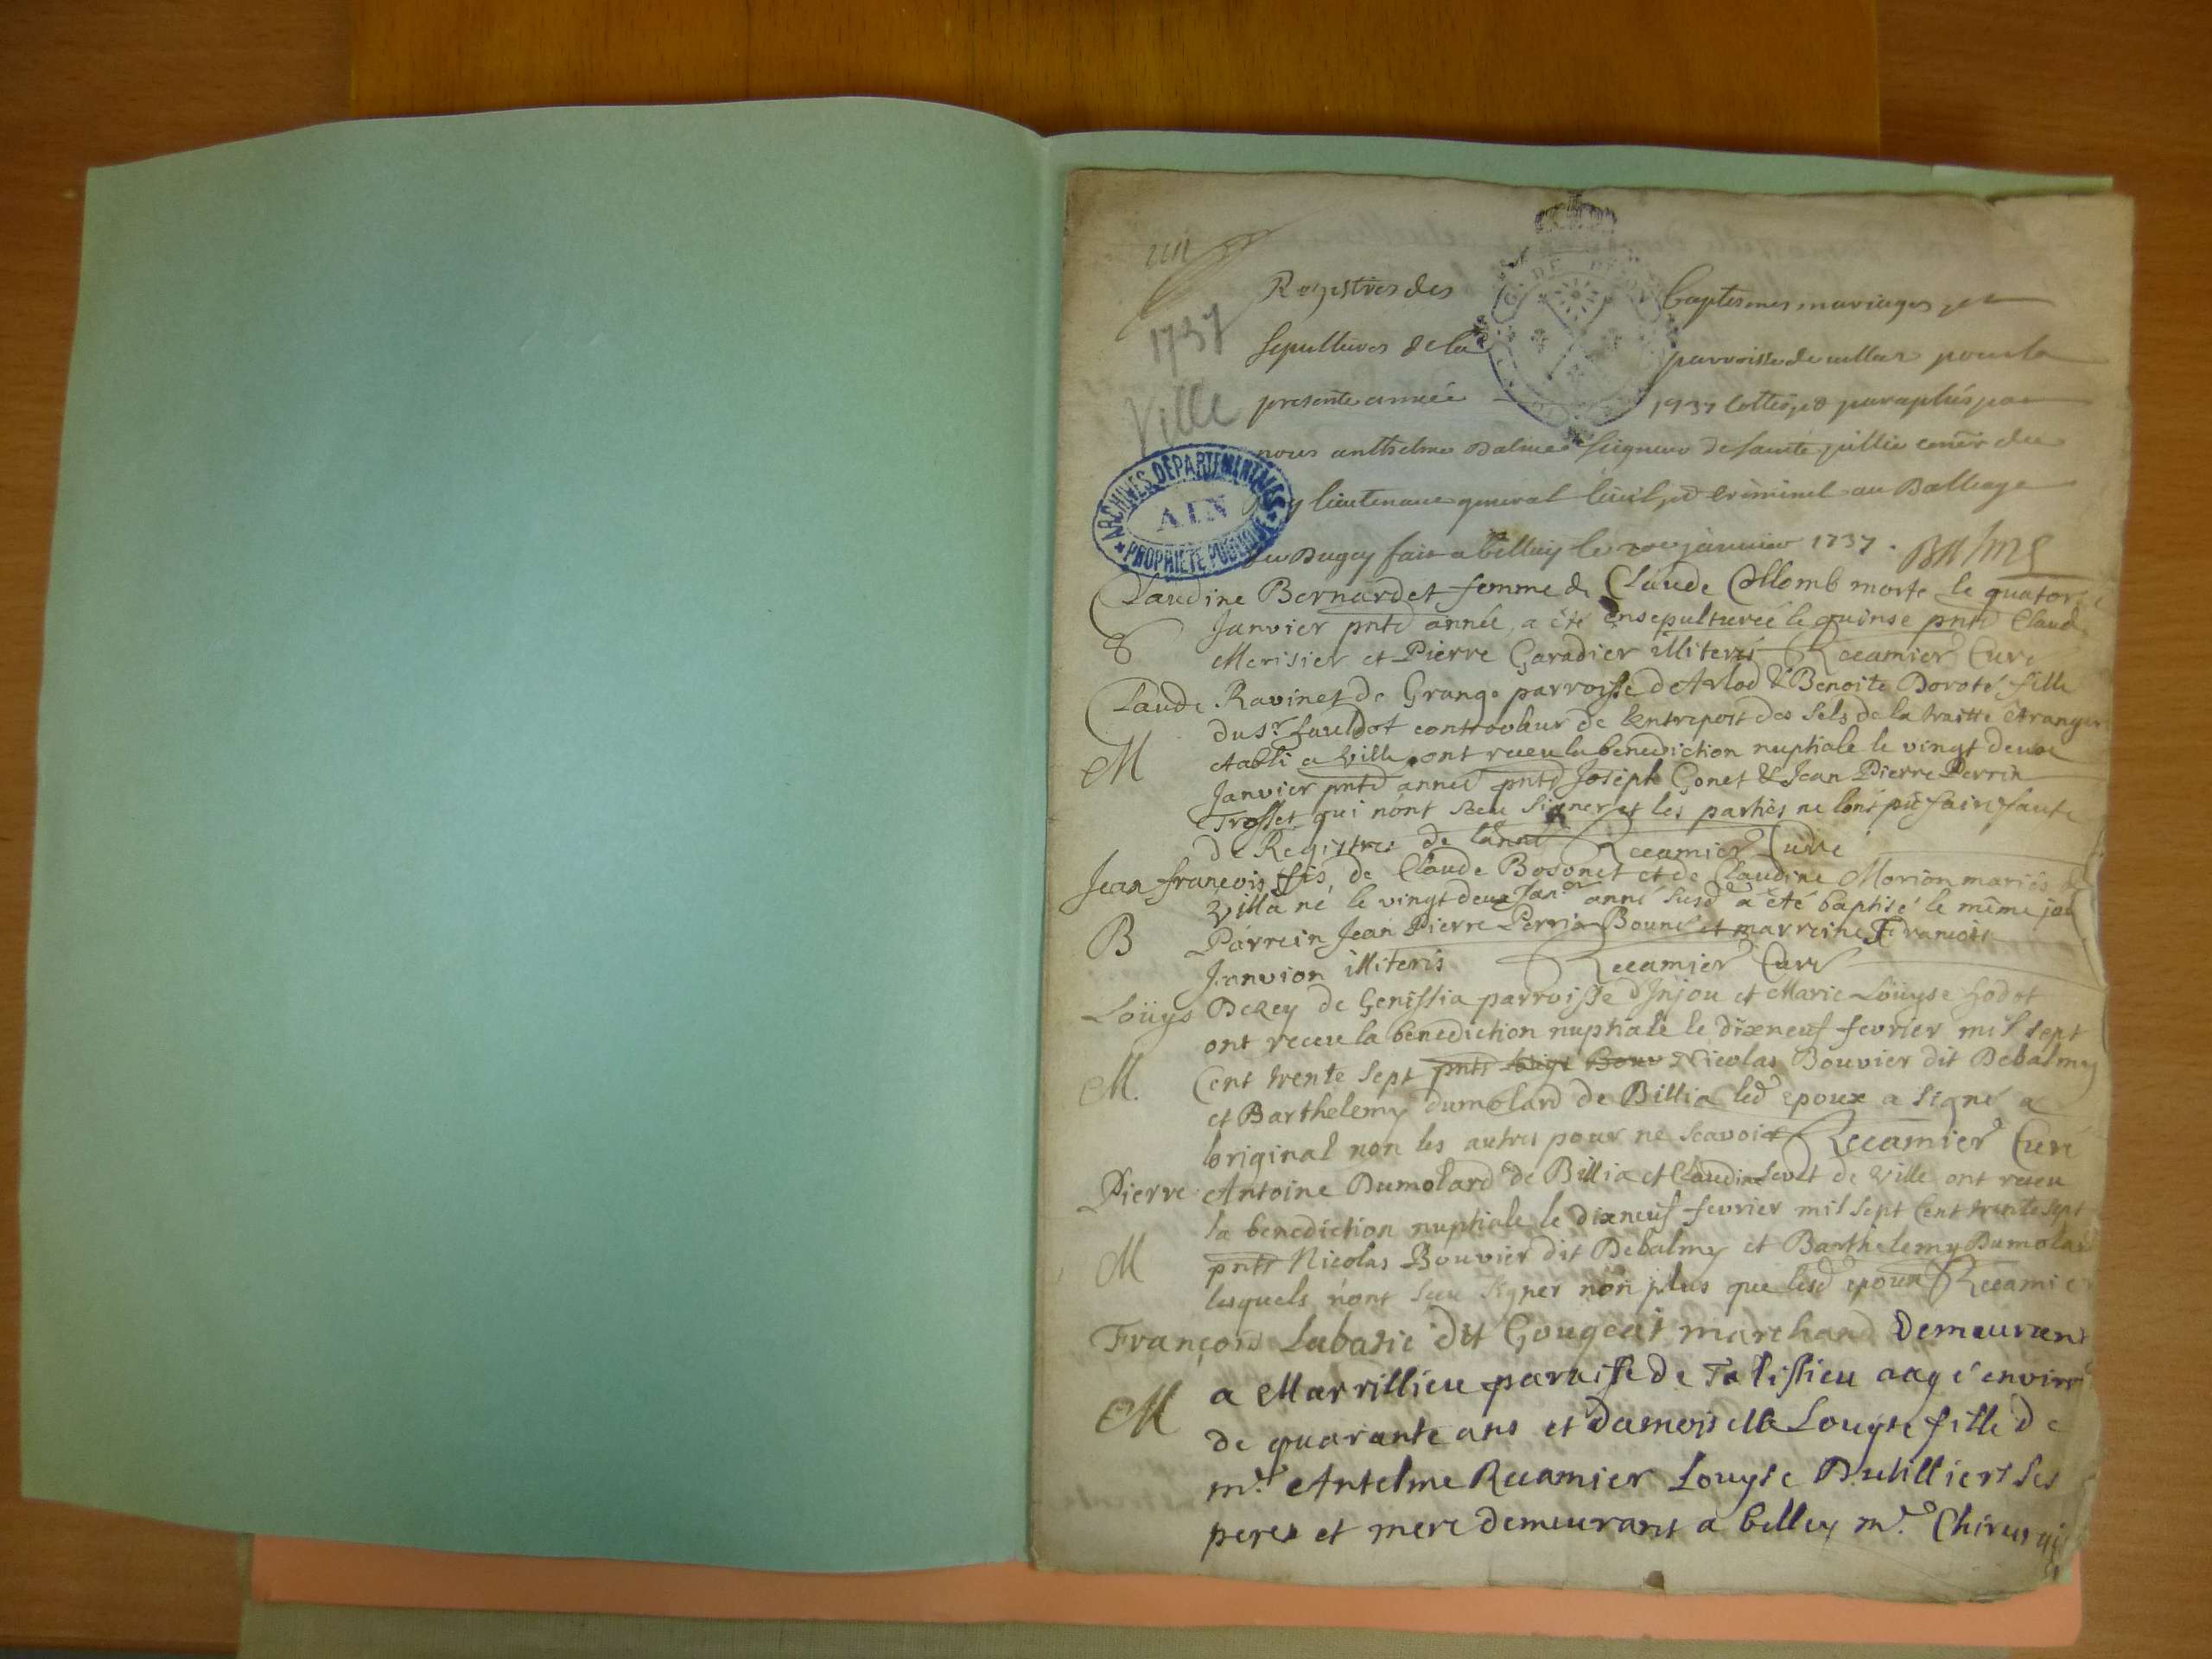 un
1737
Ville
Registres des baptesmes mariages et
sepultures de la parroisse de pour la
presente année 1737 cottés et paraphés par
nous anthelme Balme seigneur de sainte jullie coner du
Roy lieutenant general civil et criminel au Balliage
du Bugey fait a belley le janvier 1737. Balme
ARCHIVES DEPARTEMENTALES
AIN
PROPRIETE PUBLIQUE
Claudine Bernardet femme de Claude Collomb morte le quatorze
Janvier pnte année a été ensepulturée le quinse pnts Claude
Merisier et Pierre Garadier illiterés Recamier Curé
Claude Ravinet de Grange parroisse d'Arlod & Benoite Doroté fille
du Sr. controolleur de lentrepost des sels de la traitte étrangere
etabli a Ville ont receu la benediction nuptiale le vingt deux
M
Janvier pnte année pnts Joseph Gonet & Jean Pierre Perrin
Trosset qui nont sceu signer et les parties ne lont pû faire faute
de Registres de lanné Recamier Curé
Jean françois fils de Claude Bosonet et de Claudine Morion mariés de
Villa né le vingt deux Janer anné susd a été baptisé le même jour
B
Parrein Jean Pierre Perrin Bouné et marreine Françoise
Janvion illiterés Recamier Curé
Loüys DeRey de Genissia parroisse d'Injou et Marie Loüyse Godet
ont receu la benediction nuptiale le dixneuf fevrier mil sept
M.
Cent trente sept pnts Nicolas Bouvier dit Debalmey
et Barthelemy Dumolard de Billia led epoux a signé a
loriginal non les autres pour ne scavoir Recamier Curé
Pierre Antoine Dumolard de Billia et Claudine de Ville ont receu
la benediction nuptiale le dixneuf fevrier mil sept Cent trente sept
M
pnts Nicolas Bouvier dit Debalmey et Barthelemy Dumolard
lesquels n'ont sceu signer non plus que lesd epoux Recamier
François Labatie dit Gougeat marchand demeurant
a Marrillieu paroisse de Talissieu aagé environ
M
de quarante ans et Damoiselle Louyse fille de
mr. Antelme Recamier Louyse Dutillier ses
peres et mere demeurant a belley mr. Chirurgi